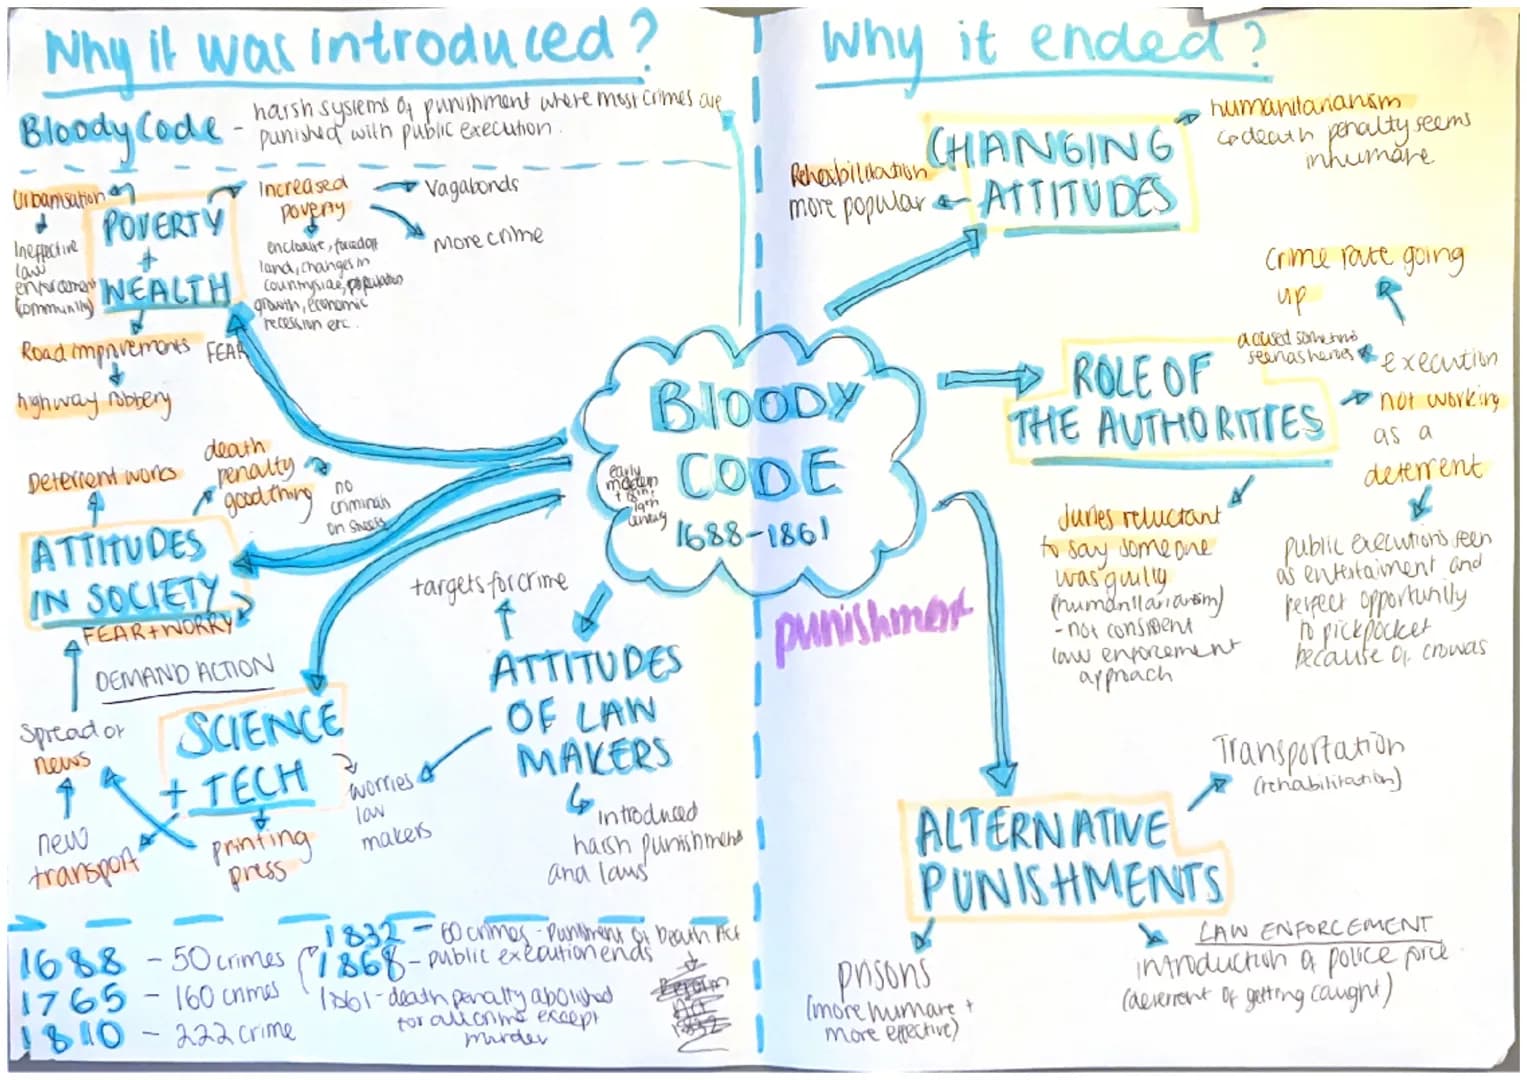 Why it was introduced?
Bloody Code - harsh systems of punishment where most crimes are
punished with public execution.
Urbanisation
Ineffective
law
enforcement
(community)
POVERTY
+
WEALTH
Increased
poverty
Vagabonds
More crime
enclosure, forced off
land, changes in
countryside, population
growth, economic
recession etc.
Road improvements
highway robbery
FEAR
Deterrent works
death
penalty
good thing
no
criminals
on streets
ATTITUDES
IN SOCIETY
FEAR + WORRY
DEMAND ACTION
Spread of
news
new
transport
SCIENCE
+ TECH
printing
press
worries
law
makers
targets for crime
ATTITUDES
OF LAW
MAKERS
introduced
harsh punishment
and laws
1688 - 50 crimes
1765 - 160 crimes
1810 - 222 crime
1832 - 60 crimes - Punishment of Death Act
1868 - public execution ends
1861 - death penalty abolished
for all crime except
murder
Reform
Act
1832
BLOODY
CODE
1688-1861
early
modern
+ 18th,
19th
century
punishment
Why it ended?
CHANGING
ATTITUDES
humanitarianism
death penalty seems
inhumane
Rehabilitation
more popular
ROLE OF
THE AUTHORITIES
Crime rate going
up
accused sometimes
seen as heroes
execution
not working
as a
deterrent
public executions seen
as entertaiment and
perfect opportunity
to pickpocket
because of crowds
Juries reluctant
to say someone
was guilty
(humanitarianism)
- not consistent
law enforcement
approach
ALTERNATIVE
PUNISHMENTS
Transportation
(rehabilitation)
prisons
(more humane +
more effective)
LAW ENFORCEMENT
introduction of police force
(deterrent of getting caught)